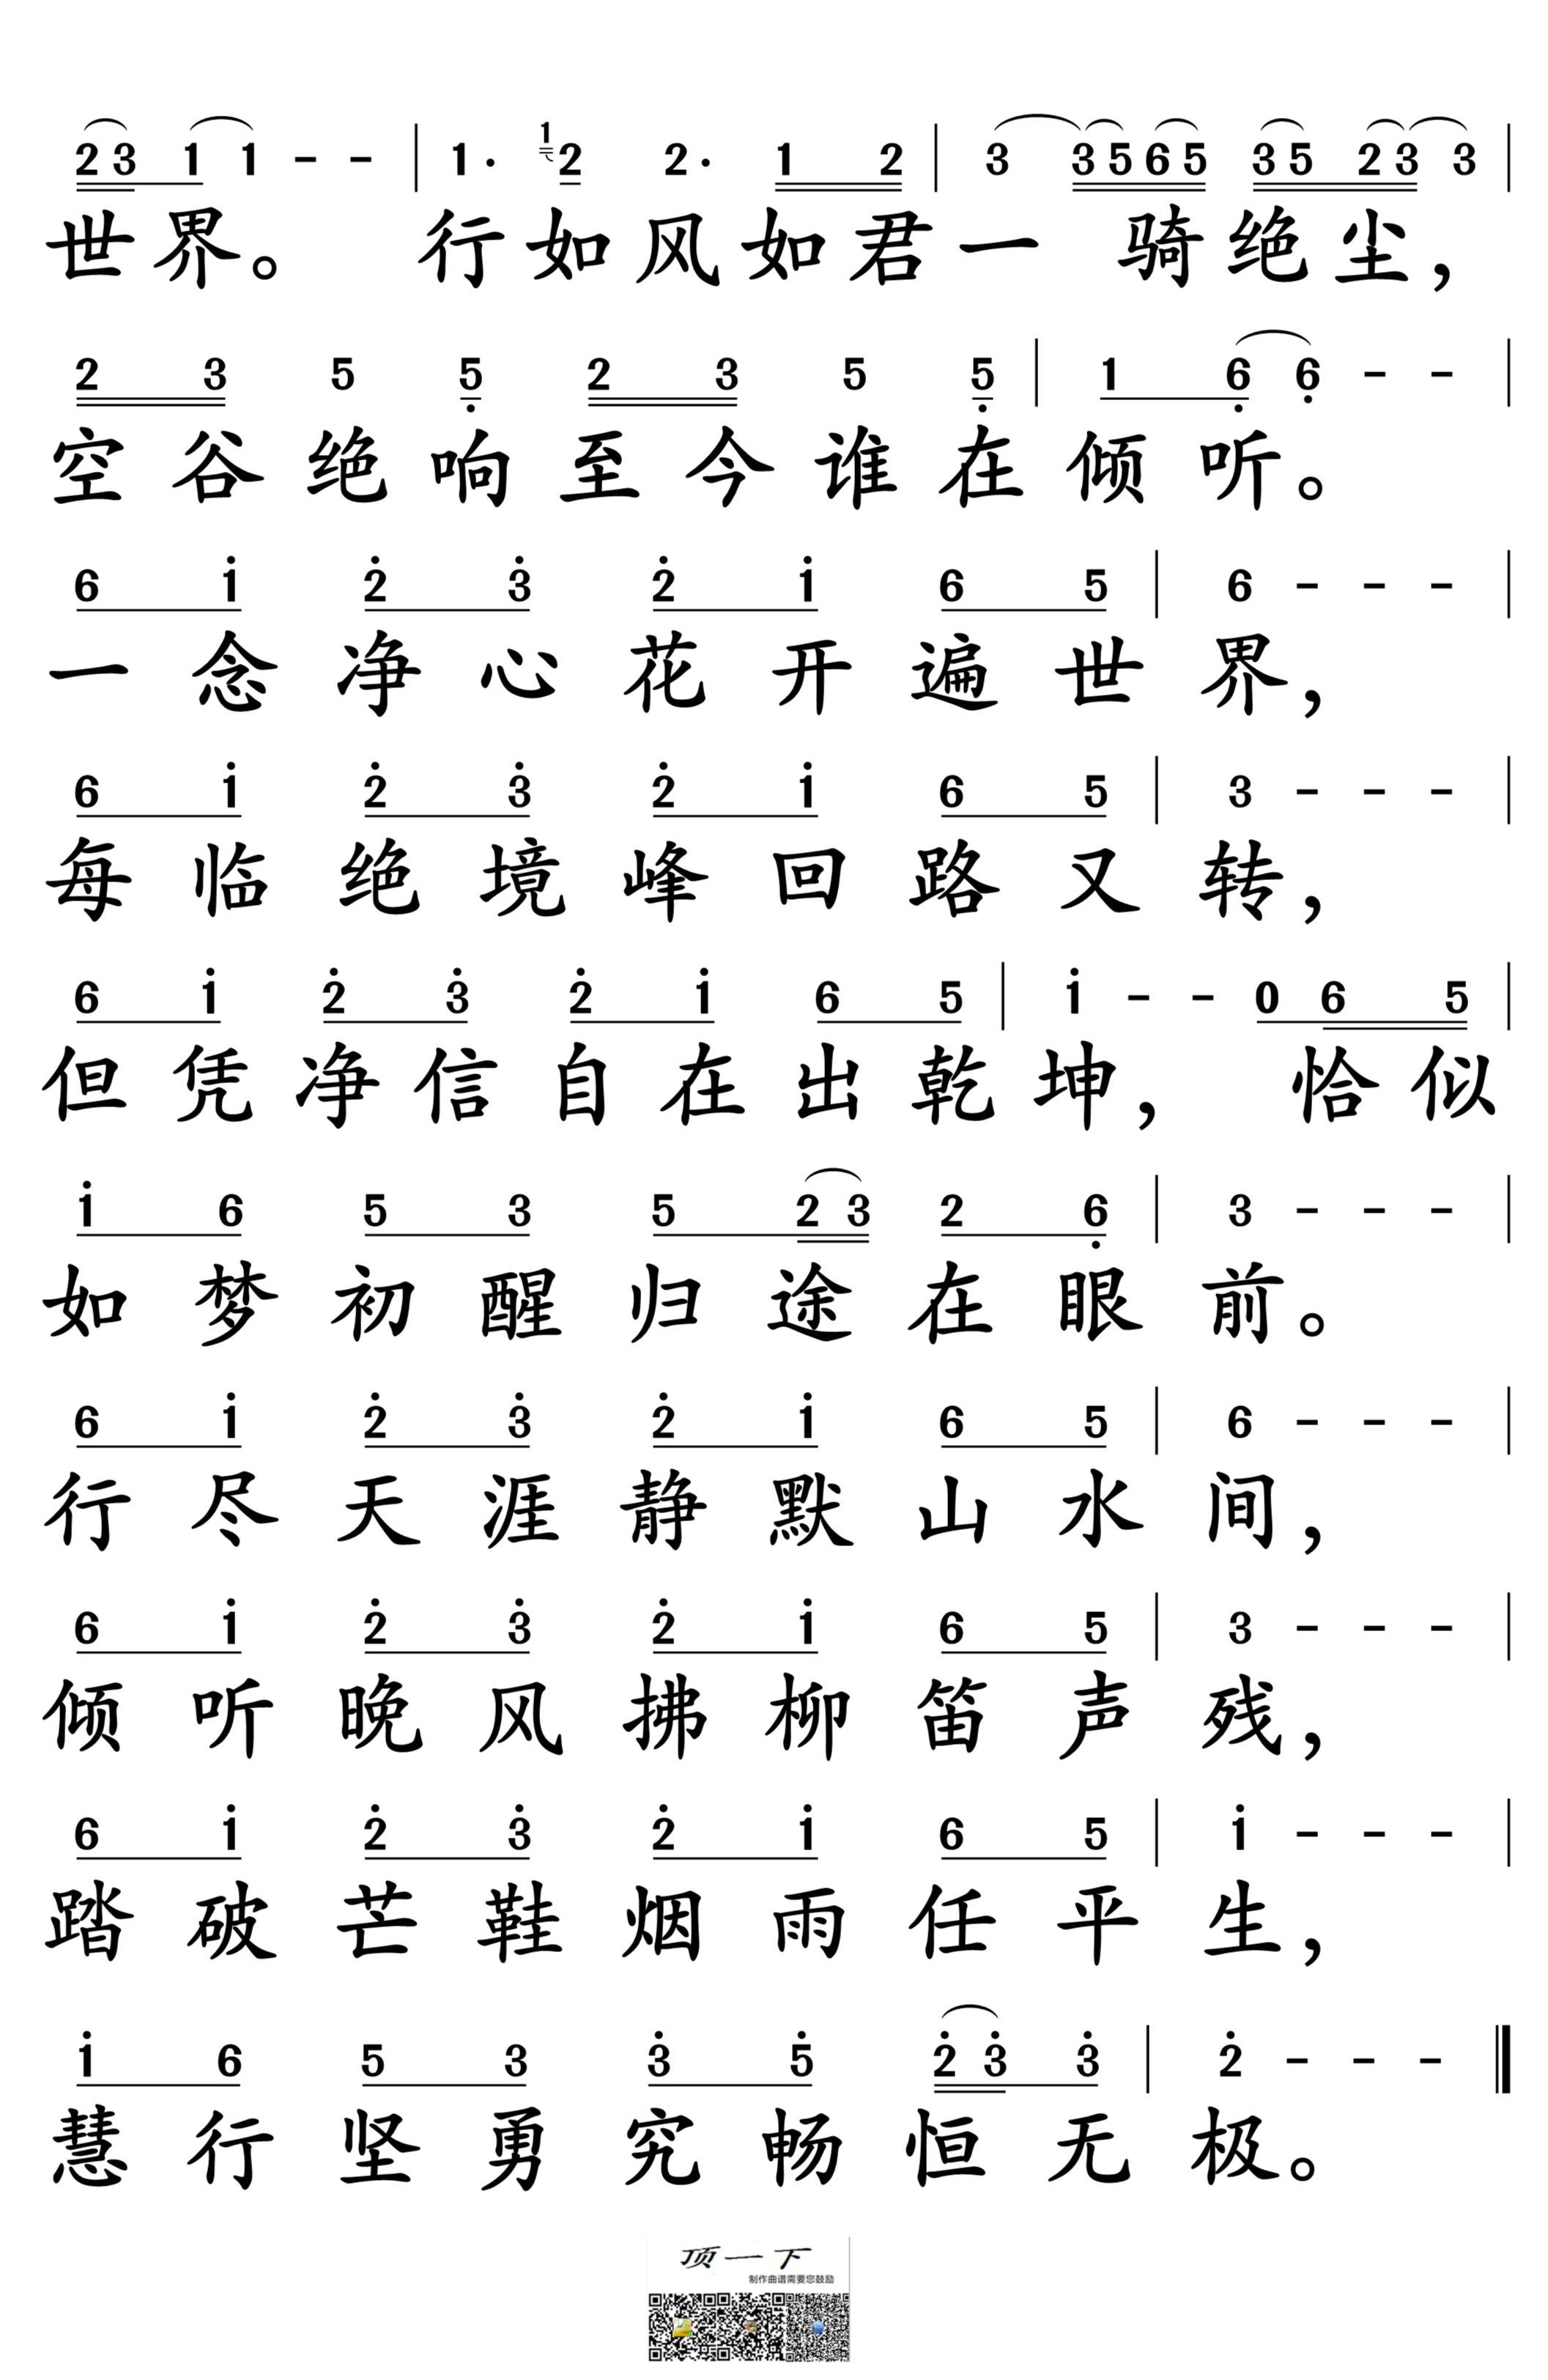 23 1 1 - - | 1· 12 2· 1 2 | 3 3565 35 23 3 |
世界。 行如风如君一 骑绝尘，
2 3 5 5 2 3 5 5 | 1 6 6 - - |
空谷绝响至今谁在倾听。
6 1 2 3 2 1 6 5 | 6 - - - |
一念净心花开遍世界，
6 1 2 3 2 1 6 5 | 3 - - - |
每临绝境峰回路又转，
6 1 2 3 2 1 6 5 | 1 - - 0 6 5 |
但凭净信自在出乾坤， 恰似
1 6 5 3 5 23 2 6 | 3 - - - |
如梦初醒归途在眼前。
6 1 2 3 2 1 6 5 | 6 - - - |
行尽天涯静默山水间，
6 1 2 3 2 1 6 5 | 3 - - - |
倾听晚风拂柳笛声残，
6 1 2 3 2 1 6 5 | 1 - - - |
踏破芒鞋烟雨任平生，
1 6 5 3 3 5 23 3 | 2 - - - ‖
慧行坚勇究畅恒无极。
顶一下
制作曲谱需要您鼓励